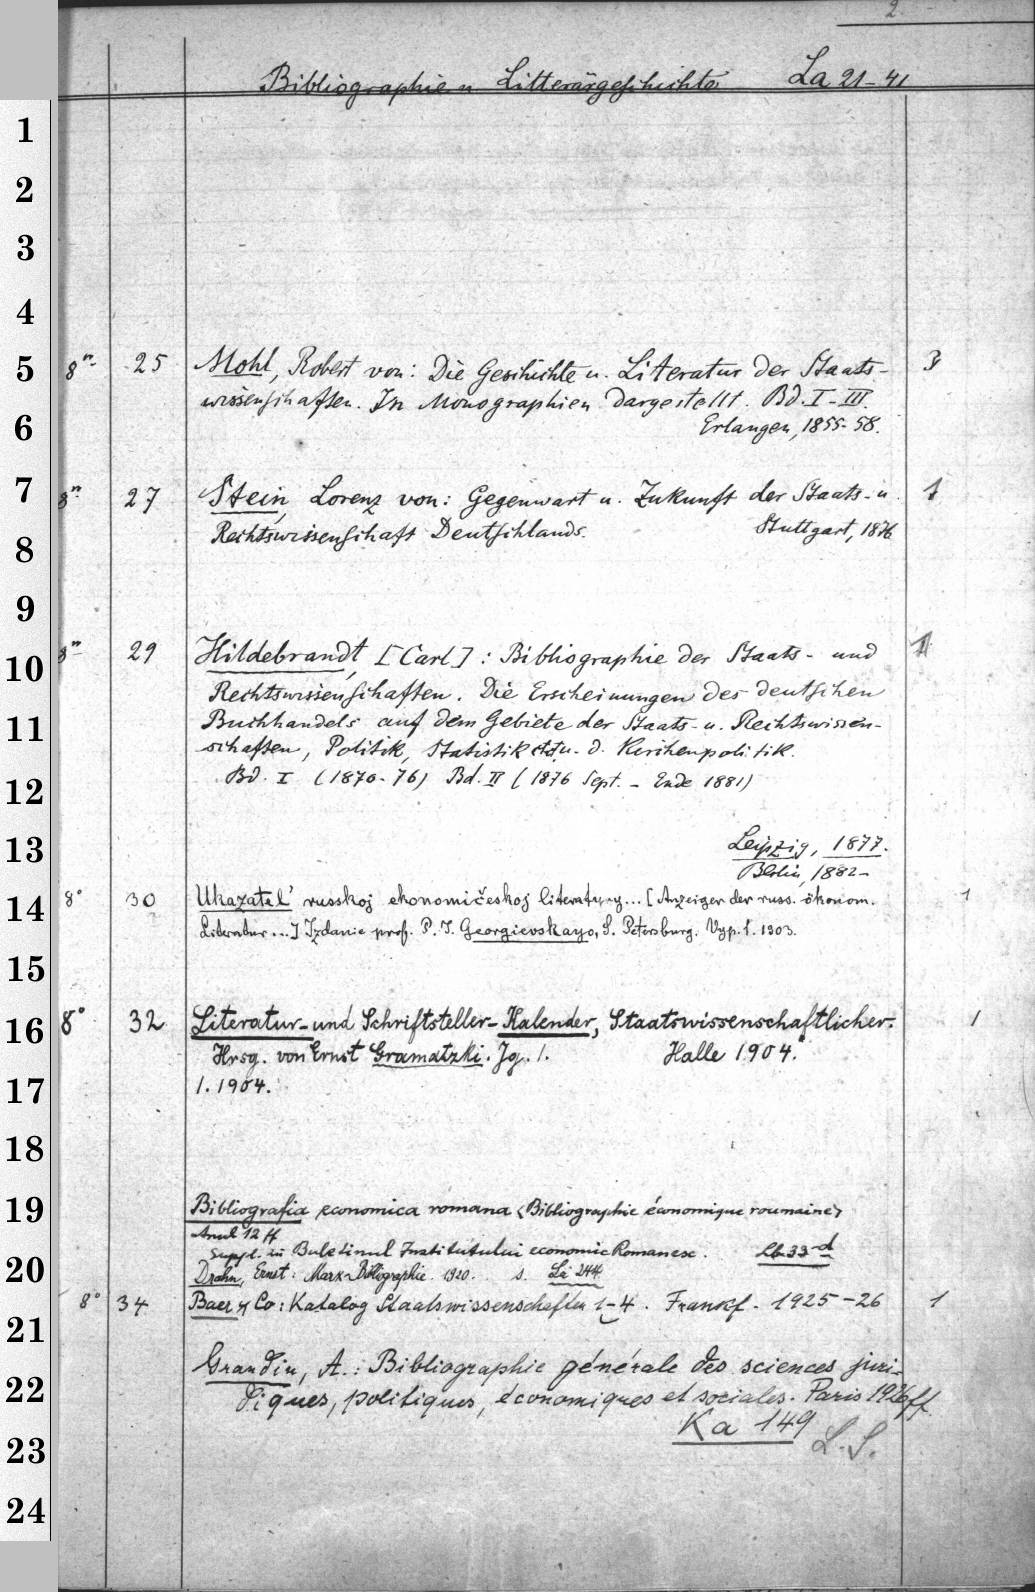 2.
Bibliographie u Litterärgeschichte La 21-41
1
2
3
4
5 8° 25 Mohl, Robert von: Die Geschichte u. Literatur der Staats- 3
wissenschaften. In Monographien dargestellt. Bd. I-III.
6 Erlangen, 1855-58.
7 8° 27 Stein, Lorenz von: Gegenwart u. Zukunft der Staats- u. 1
8 Rechtswissenschaft Deutschlands. Stuttgart, 1876
9
10 8° 29 Hildebrandt, [Carl]: Bibliographie der Staats- und 1
Rechtswissenschaften. Die Erscheinungen des deutschen
11 Buchhandels auf dem Gebiete der Staats- u. Rechtswissen-
schaften, Politik, Statistik u. d. Kirchenpolitik.
12 Bd. I (1870-76) Bd. II (1876 Sept. - Ende 1881)
13 Leipzig, 1877.
Berlin, 1882-
14 8° 30 Ukazatel' russkoj ekonomičeskoj literatury... [Anzeiger der russ. ökonom. 1
Literatur...] Izdanie prof. P. I. Georgievskago, S. Petersburg. Vyp. 1. 1903.
15
16 8° 32 Literatur- und Schriftsteller-Kalender, Staatswissenschaftlicher. 1
Hrsg. von Ernst Gramatzki. Jg. 1. Halle 1904.
17 1. 1904.
18
19 Bibliografia economica romana (Bibliographie économique roumaine)
Anul 12 ff
20 Suppl. zu Buletinul Institutului economic Romanesc. Lb 33-d
Drahn, Ernst: Marx-Bibliographie. 1920. s. La 244
21 8° 34 Baer & Co: Katalog Staatswissenschaften 1-4. Frankf. 1925-26 1
22 Grandin, A.: Bibliographie générale des sciences juri-
diques, politiques, économiques et sociales. Paris 1926 ff.
23 Ka 149 L. S.
24